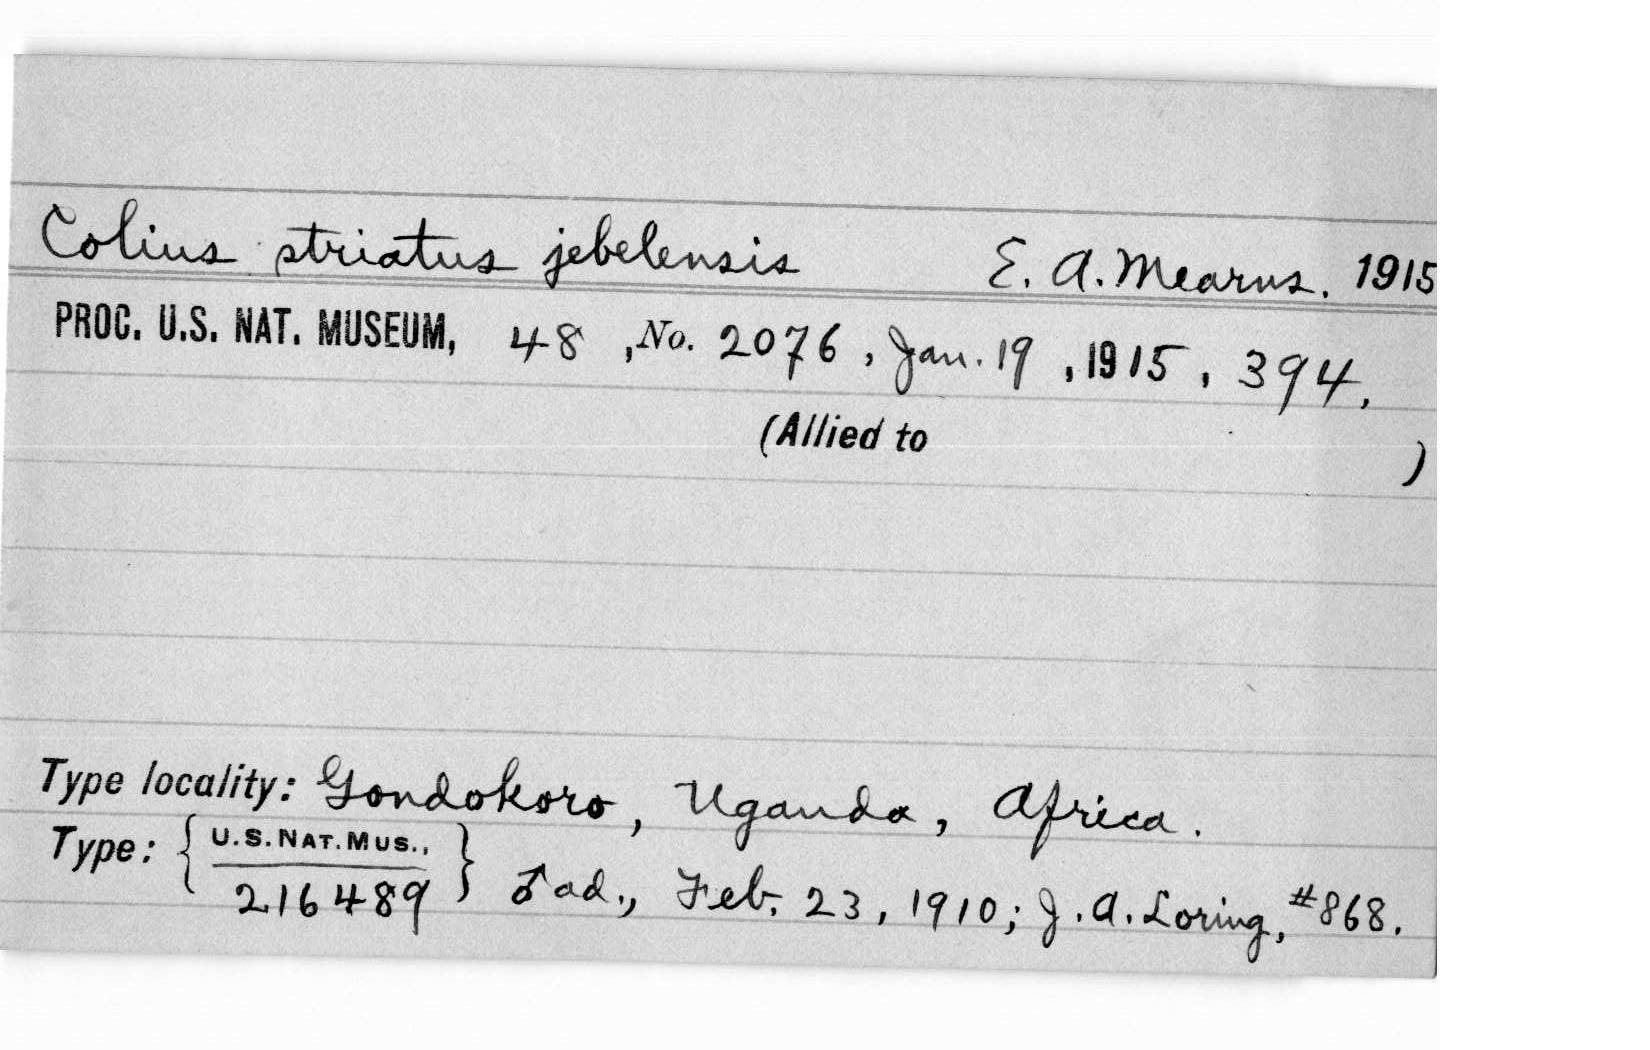 Colius striatus jebelensis E. A. Mearns. 1915
PROC. U.S. NAT. MUSEUM, 48, No. 2076, Jan. 19, 1915, 394.
(Allied to )
Type locality: Gondokoro, Uganda, Africa.
Type: { U.S. NAT. MUS., } ♂ ad., Feb. 23, 1910; J. A. Loring, #868.
216489